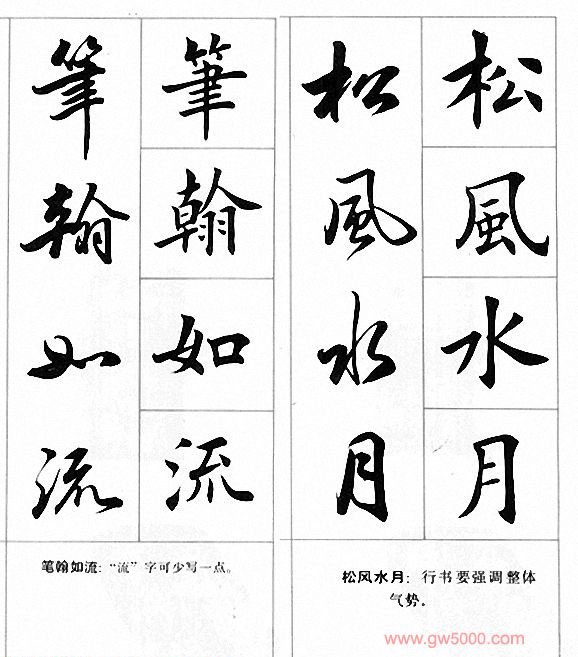 松風水月
松風水月
松风水月：行书要强调整体
气势。
筆翰如流
筆翰如流
笔翰如流：“流”字可少写一点。
www.gw5000.com